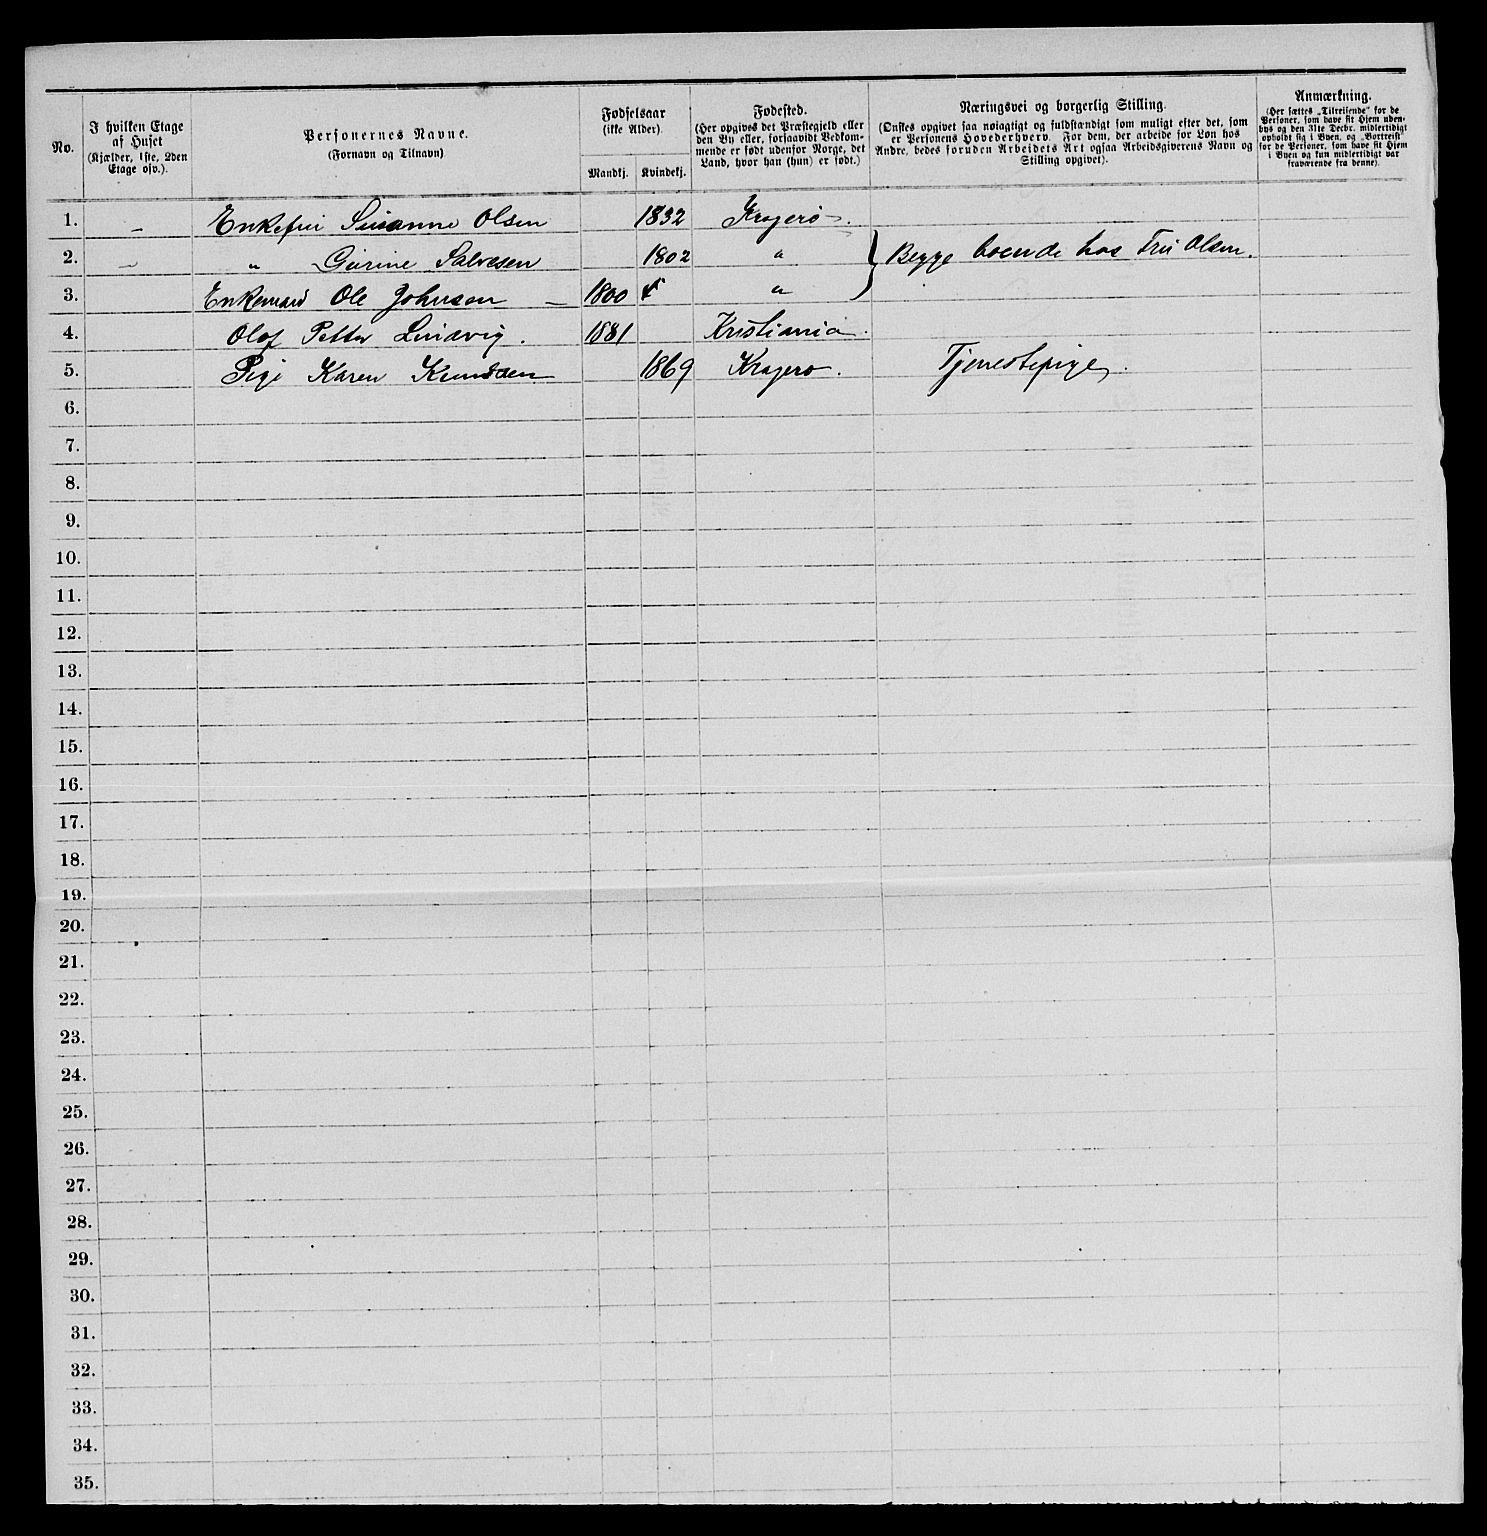 No.
I hvilken Etage af Huset (Kjælder, 1ste, 2den Etage osv.).
Personernes Navne. (Fornavn og Tilnavn)
Fødselsaar (ikke Alder).
Mandkj. Kvindekj.
Fødested. (Her opgives det Præstegjeld eller den By eller, forsaavidt Vedkommende er født udenfor Norge, det Land, hvor han (hun) er født.)
Næringsvei og borgerlig Stilling. (Ønskes opgivet saa nøiagtigt og fuldstændigt som muligt efter det, som er Personens Hovederhverv. For dem, der arbeide for Løn hos Andre, bedes foruden Arbeidets Art ogsaa Arbeidsgiverens Navn og Stilling opgivet).
Anmærkning. (Her sættes „Tilreisende" for de Personer, som have sit Hjem udenbys og den 31te Decbr. midlertidigt opholdt sig i Byen, og „Bortreist" for de Personer, som have sit Hjem i Byen og kun midlertidigt var fraværende fra denne).
1. – Enkefru Susanne Olsen 1832 Kragerø.
2. – " Gurine Salvesen 1802 " } Begge boende hos Fru Olsen.
3. Enkemand Ole Johnsen – 1800 "
4. Olaf Petter Lindvig. 1881 Kristiania.
5. Pige Karen Knudsen 1869 Kragerø. Tjenestepige.
6.
7.
8.
9.
10.
11.
12.
13.
14.
15.
16.
17.
18.
19.
20.
21.
22.
23.
24.
25.
26.
27.
28.
29.
30.
31.
32.
33.
34.
35.